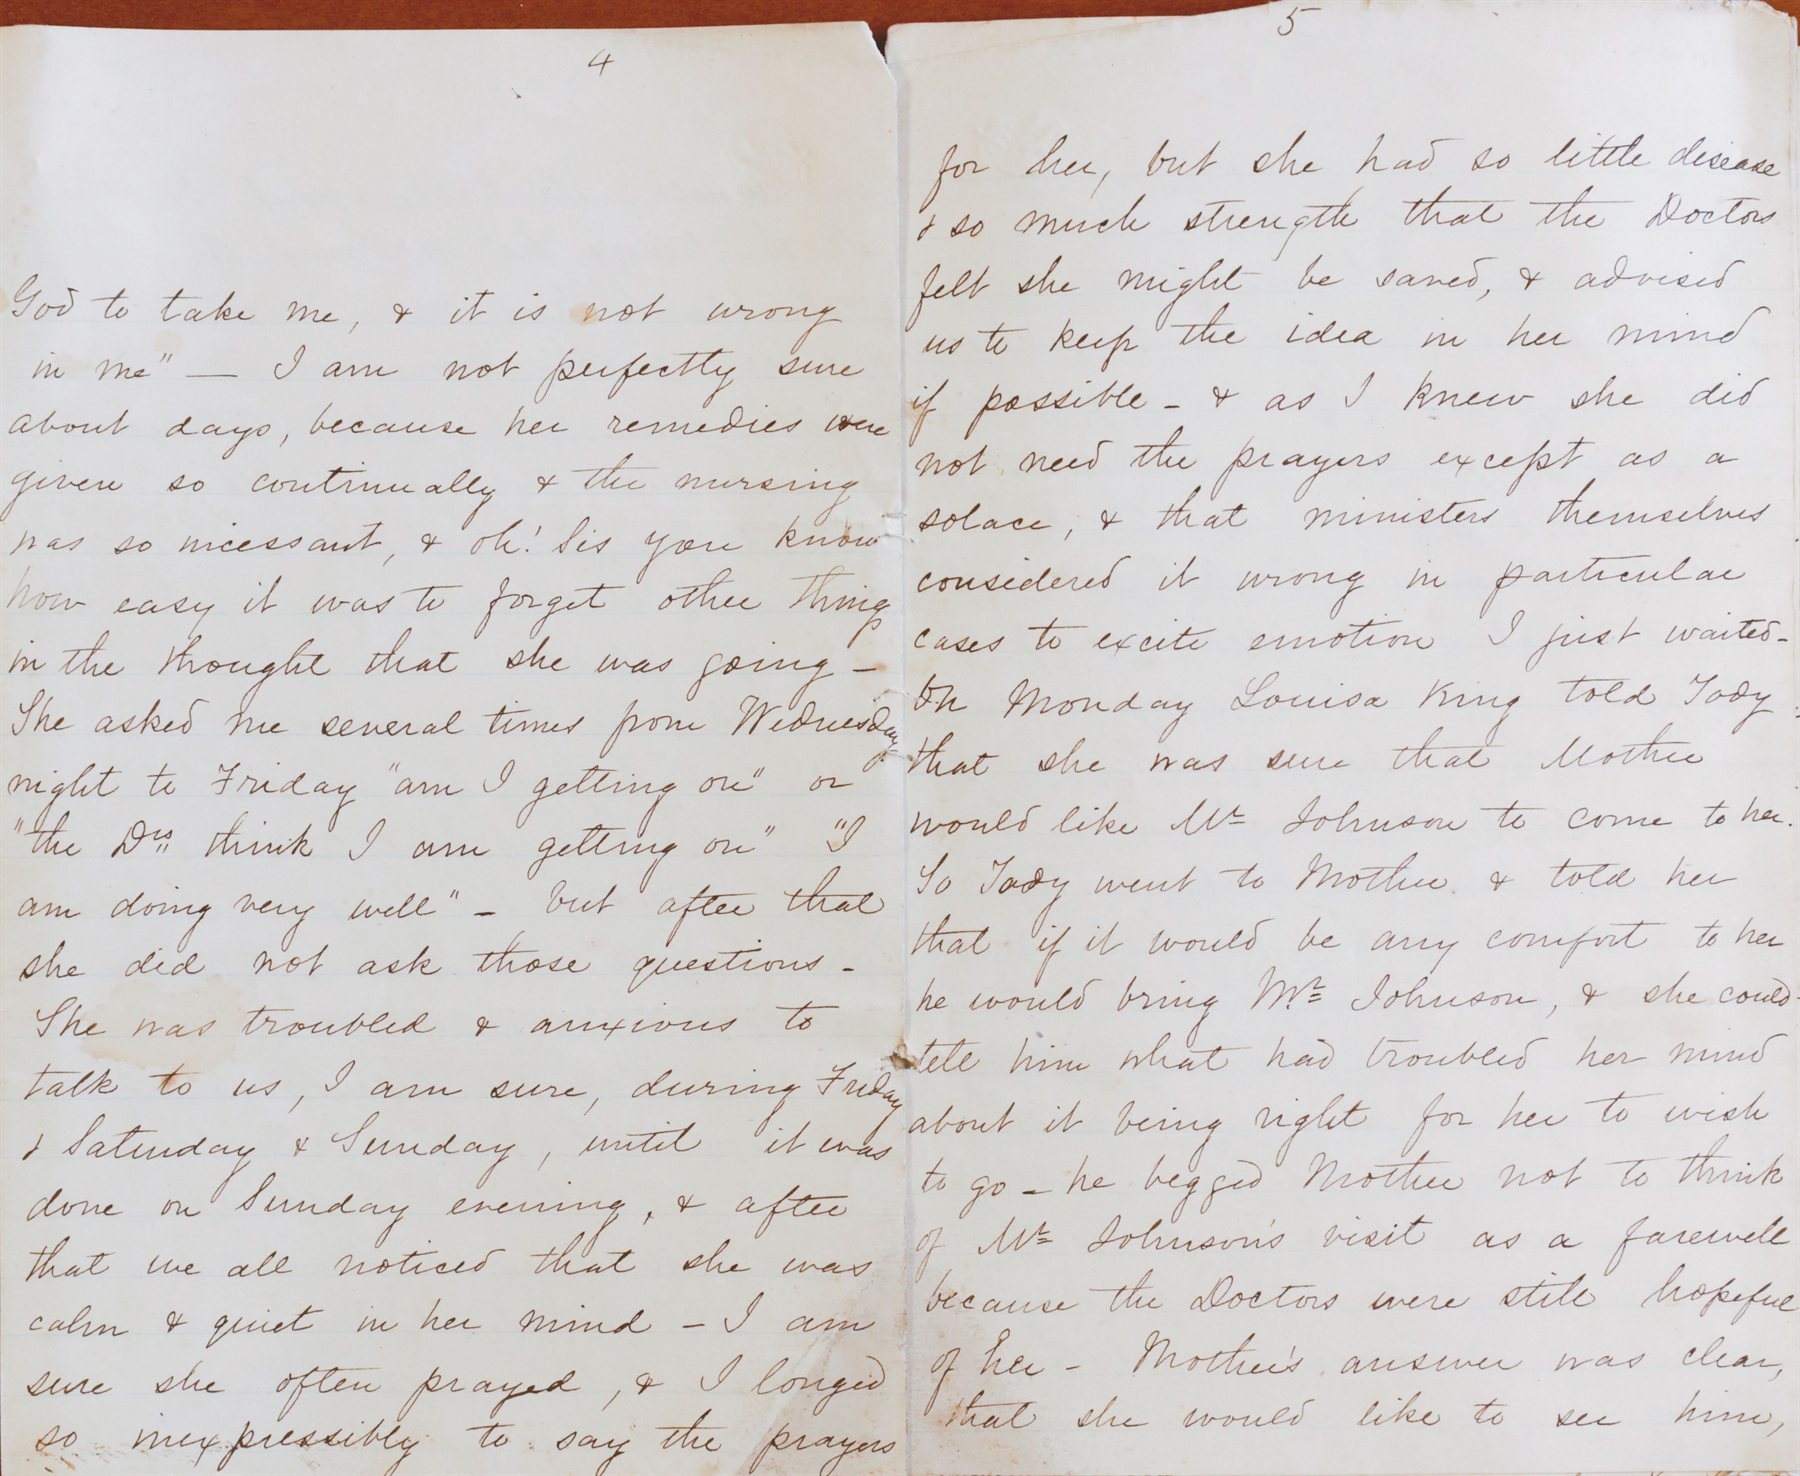 4
God to take me, & it is not wrong
in me" — I am not perfectly sure
about days, because her remedies were
given so continually & the nursing
was so incessant, & oh! Sis you know
how easy it was to forget other things
in the thought that she was going —
She asked me several times from Wednesday
night to Friday "am I getting on" or
"the Drs. think I am getting on" "I
am doing very well" - but after that
she did not ask those questions -
She was troubled & anxious to
talk to us, I am sure, during Friday
& Saturday & Sunday, until it was
done on Sunday evening, & after
that we all noticed that she was
calm & quiet in her mind - I am
sure she often prayed, & I longed
so inexpressibly to say the prayers
5
for her, but she had so little disease
& so much strength that the Doctors
felt she might be saved, & advised
us to keep the idea in her mind
if possible - & as I knew she did
not need the prayers except as a
solace, & that ministers themselves
considered it wrong in particular
cases to excite emotion I just waited -
On Monday Louisa King told Tody
that she was sure that Mother
would like Mr Johnson to come to her.
So Tody went to Mother & told her
that if it would be any comfort to her
he would bring Mr. Johnson, & she could
tell him what had troubled her mind
about it being right for her to wish
to go - he begged Mother not to think
of Mr Johnson's visit as a farewell
because the Doctors were still hopeful
of her - Mother's answer was clear,
that she would like to see him,